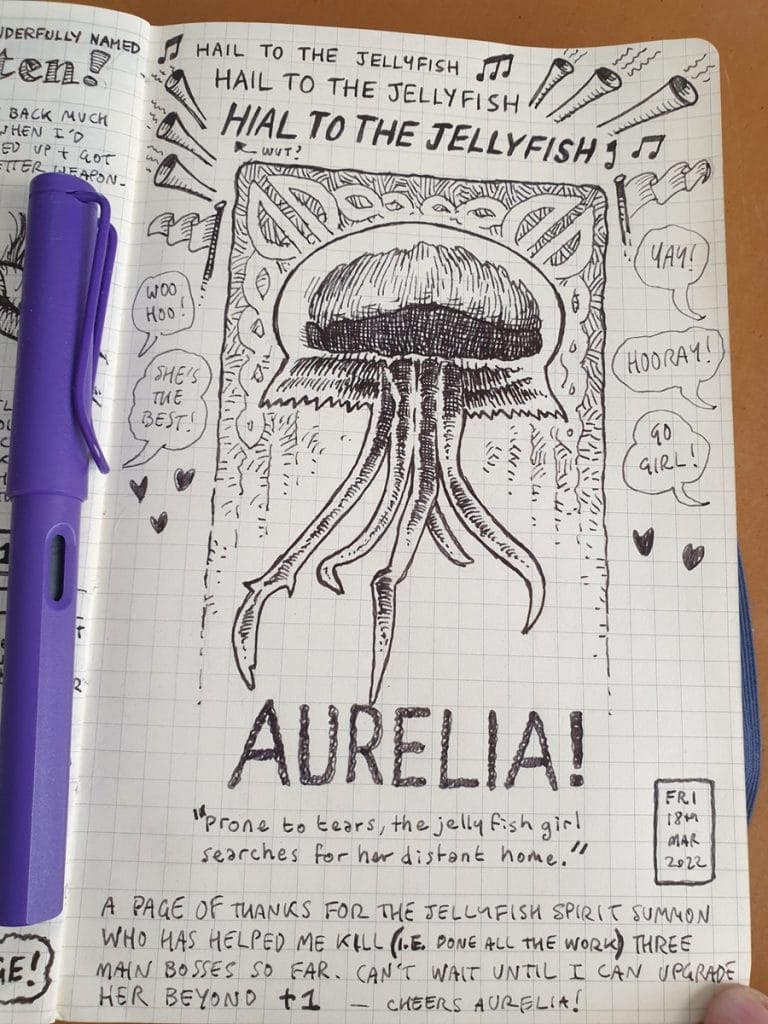 NDERFULLY NAMED
ten!
BACK MUCH
WHEN I'D
ED UP + GOT
ETTER WEAPON.
HAIL TO THE JELLYFISH
HAIL TO THE JELLYFISH
HIAL TO THE JELLYFISH
WUT?
WOO
HOO!
SHE'S
THE
BEST!
YAY!
HOORAY!
GO
GIRL!
AURELIA!
"Prone to tears, the jellyfish girl
searches for her distant home."
FRI
18TH
MAR
2022
A PAGE OF THANKS FOR THE JELLYFISH SPIRIT SUMMON
WHO HAS HELPED ME KILL (I.E. DONE ALL THE WORK) THREE
MAIN BOSSES SO FAR. CAN'T WAIT UNTIL I CAN UPGRADE
HER BEYOND +1 — CHEERS AURELIA!
GE!